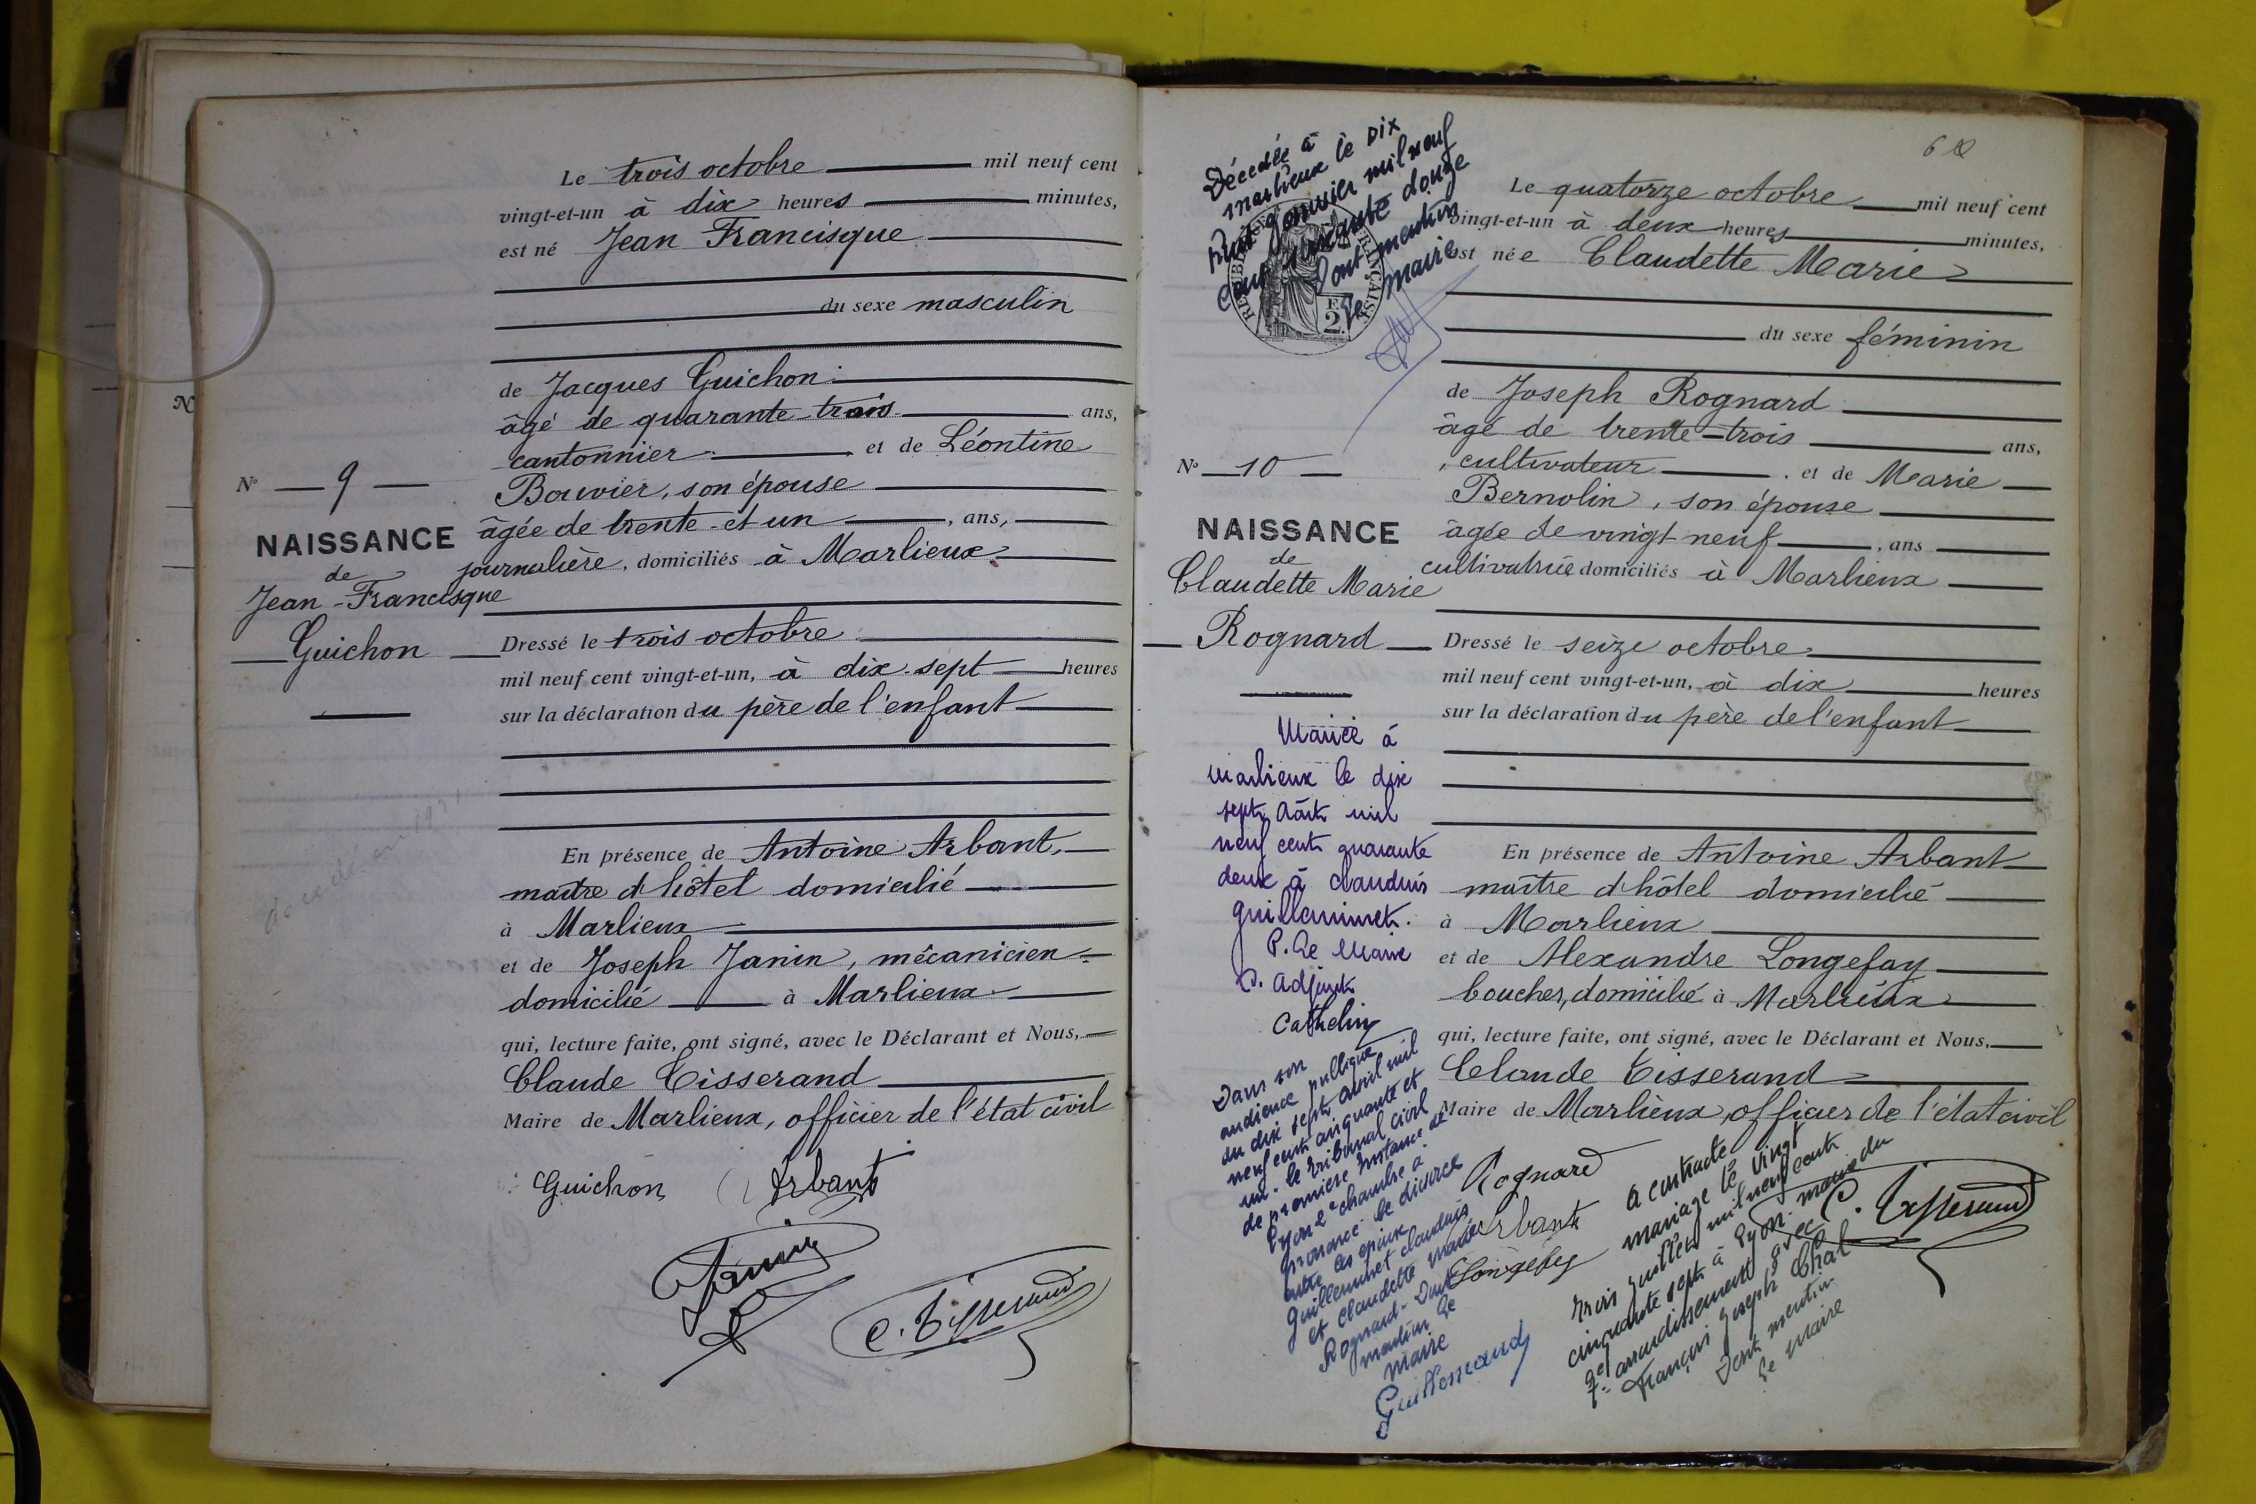 Le trois octobre mil neuf cent
vingt-et-un à dix heures minutes,
est né Jean Francisque
du sexe masculin
de Jacques Guichon
âgé de quarante trois ans,
cantonnier et de Léontine
Bouvier, son épouse
âgée de trente et un, ans,
journalière, domiciliés à Marlieux
N° 9
NAISSANCE
de
Jean-Francisque
Guichon
Dressé le trois octobre
mil neuf cent vingt-et-un, à dix-sept heures
sur la déclaration du père de l'enfant
En présence de Antoine Arbant,
maître d'hôtel domicilié
à Marlieux
et de Joseph Janin, mécanicien
domicilié à Marlieux
qui, lecture faite, ont signé, avec le Déclarant et Nous,
Claude Tisserand
Maire de Marlieux, officier de l'état civil
Guichon Arbant
Janin
C. Tisserand
Décédée à
Marlieux le dix
huit janvier mil neuf
cent soixante douze
Dont mention
Le Maire
RÉPUBLIQUE FRANÇAISE
2
Le quatorze octobre mil neuf cent
vingt-et-un à deux heures minutes,
est née Claudette Marie
du sexe féminin
de Joseph Rognard
âgé de trente-trois ans,
cultivateur et de Marie
Bernolin, son épouse
âgée de vingt neuf, ans
cultivatrice domiciliés à Marlieux
N° 10
NAISSANCE
de
Claudette Marie
Rognard
Dressé le seize octobre
mil neuf cent vingt-et-un, à dix heures
sur la déclaration du père de l'enfant
En présence de Antoine Arbant
maître d'hôtel domicilié
à Marlieux
et de Alexandre Longefay
boucher, domicilié à Marlieux
qui, lecture faite, ont signé, avec le Déclarant et Nous,
Claude Tisserand
Maire de Marlieux, officier de l'état civil
Mariée à
Marlieux le dix
sept Août mil
neuf cent quarante
deux à Claudius
Guilleminet.
P. Le Maire
L. Adjoint
Cathelin
Dans son
audience publique
du dix sept Avril mil
neuf cent cinquante et
un. le Tribunal civil
de première Instance de
Lyon 2e chambre a
prononcé le divorce
entre les époux
Guilleminet Claudius
et Claudette Marie
Rognard - Dont
mention Le
Maire
Guillemaud
Rognard
Arbant
Longefay
C. Tisserand
A contracté
mariage le vingt
trois juillet mil neuf cent
cinquante sept à Lyon mairie du
7e arrondissement avec
François Joseph Chal
Dont mention
Le Maire